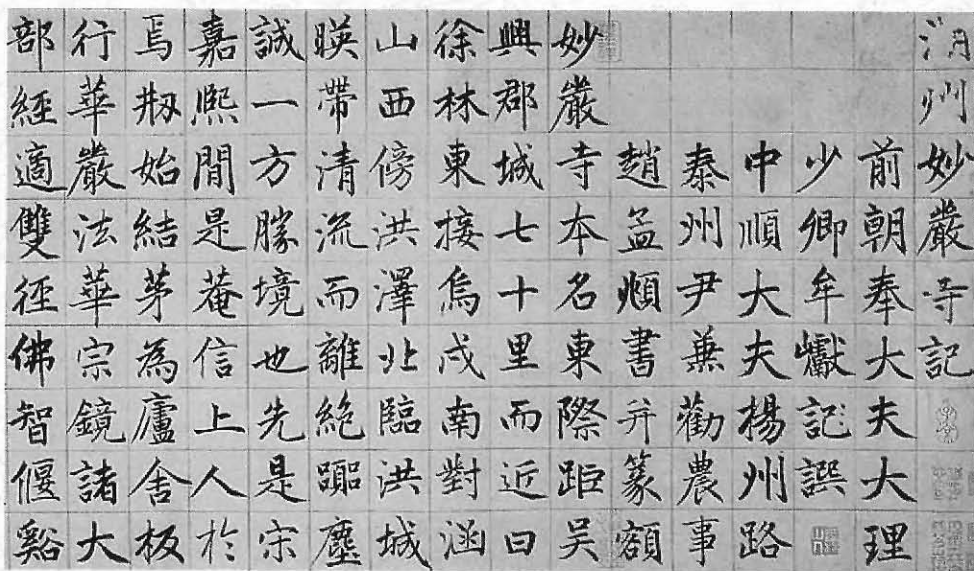 湖州妙嚴寺記
前朝奉大夫大理
少卿牟巘記譔
中順大夫楊州路
泰州尹兼勸農事
趙孟頫書并篆額
妙嚴寺本名東際距吳
興郡城七十里而近曰
徐林東接烏戍南對涵
山西傍洪澤北臨洪城
暎帶清流而離絕囂塵
誠一方勝境也先是宋
嘉熙間是菴信上人於
焉剏始結茅為廬舍板
行華嚴法華宗鏡諸大
部經適雙徑佛智偃谿